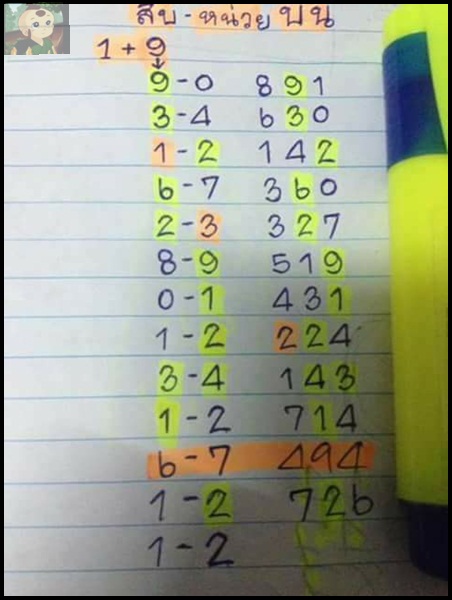 สิบ - หน่วย บน
1 + 9
9 - 0 891
3 - 4 630
1 - 2 142
6 - 7 360
2 - 3 327
8 - 9 519
0 - 1 431
1 - 2 224
3 - 4 143
1 - 2 714
6 - 7 494
1 - 2 726
1 - 2